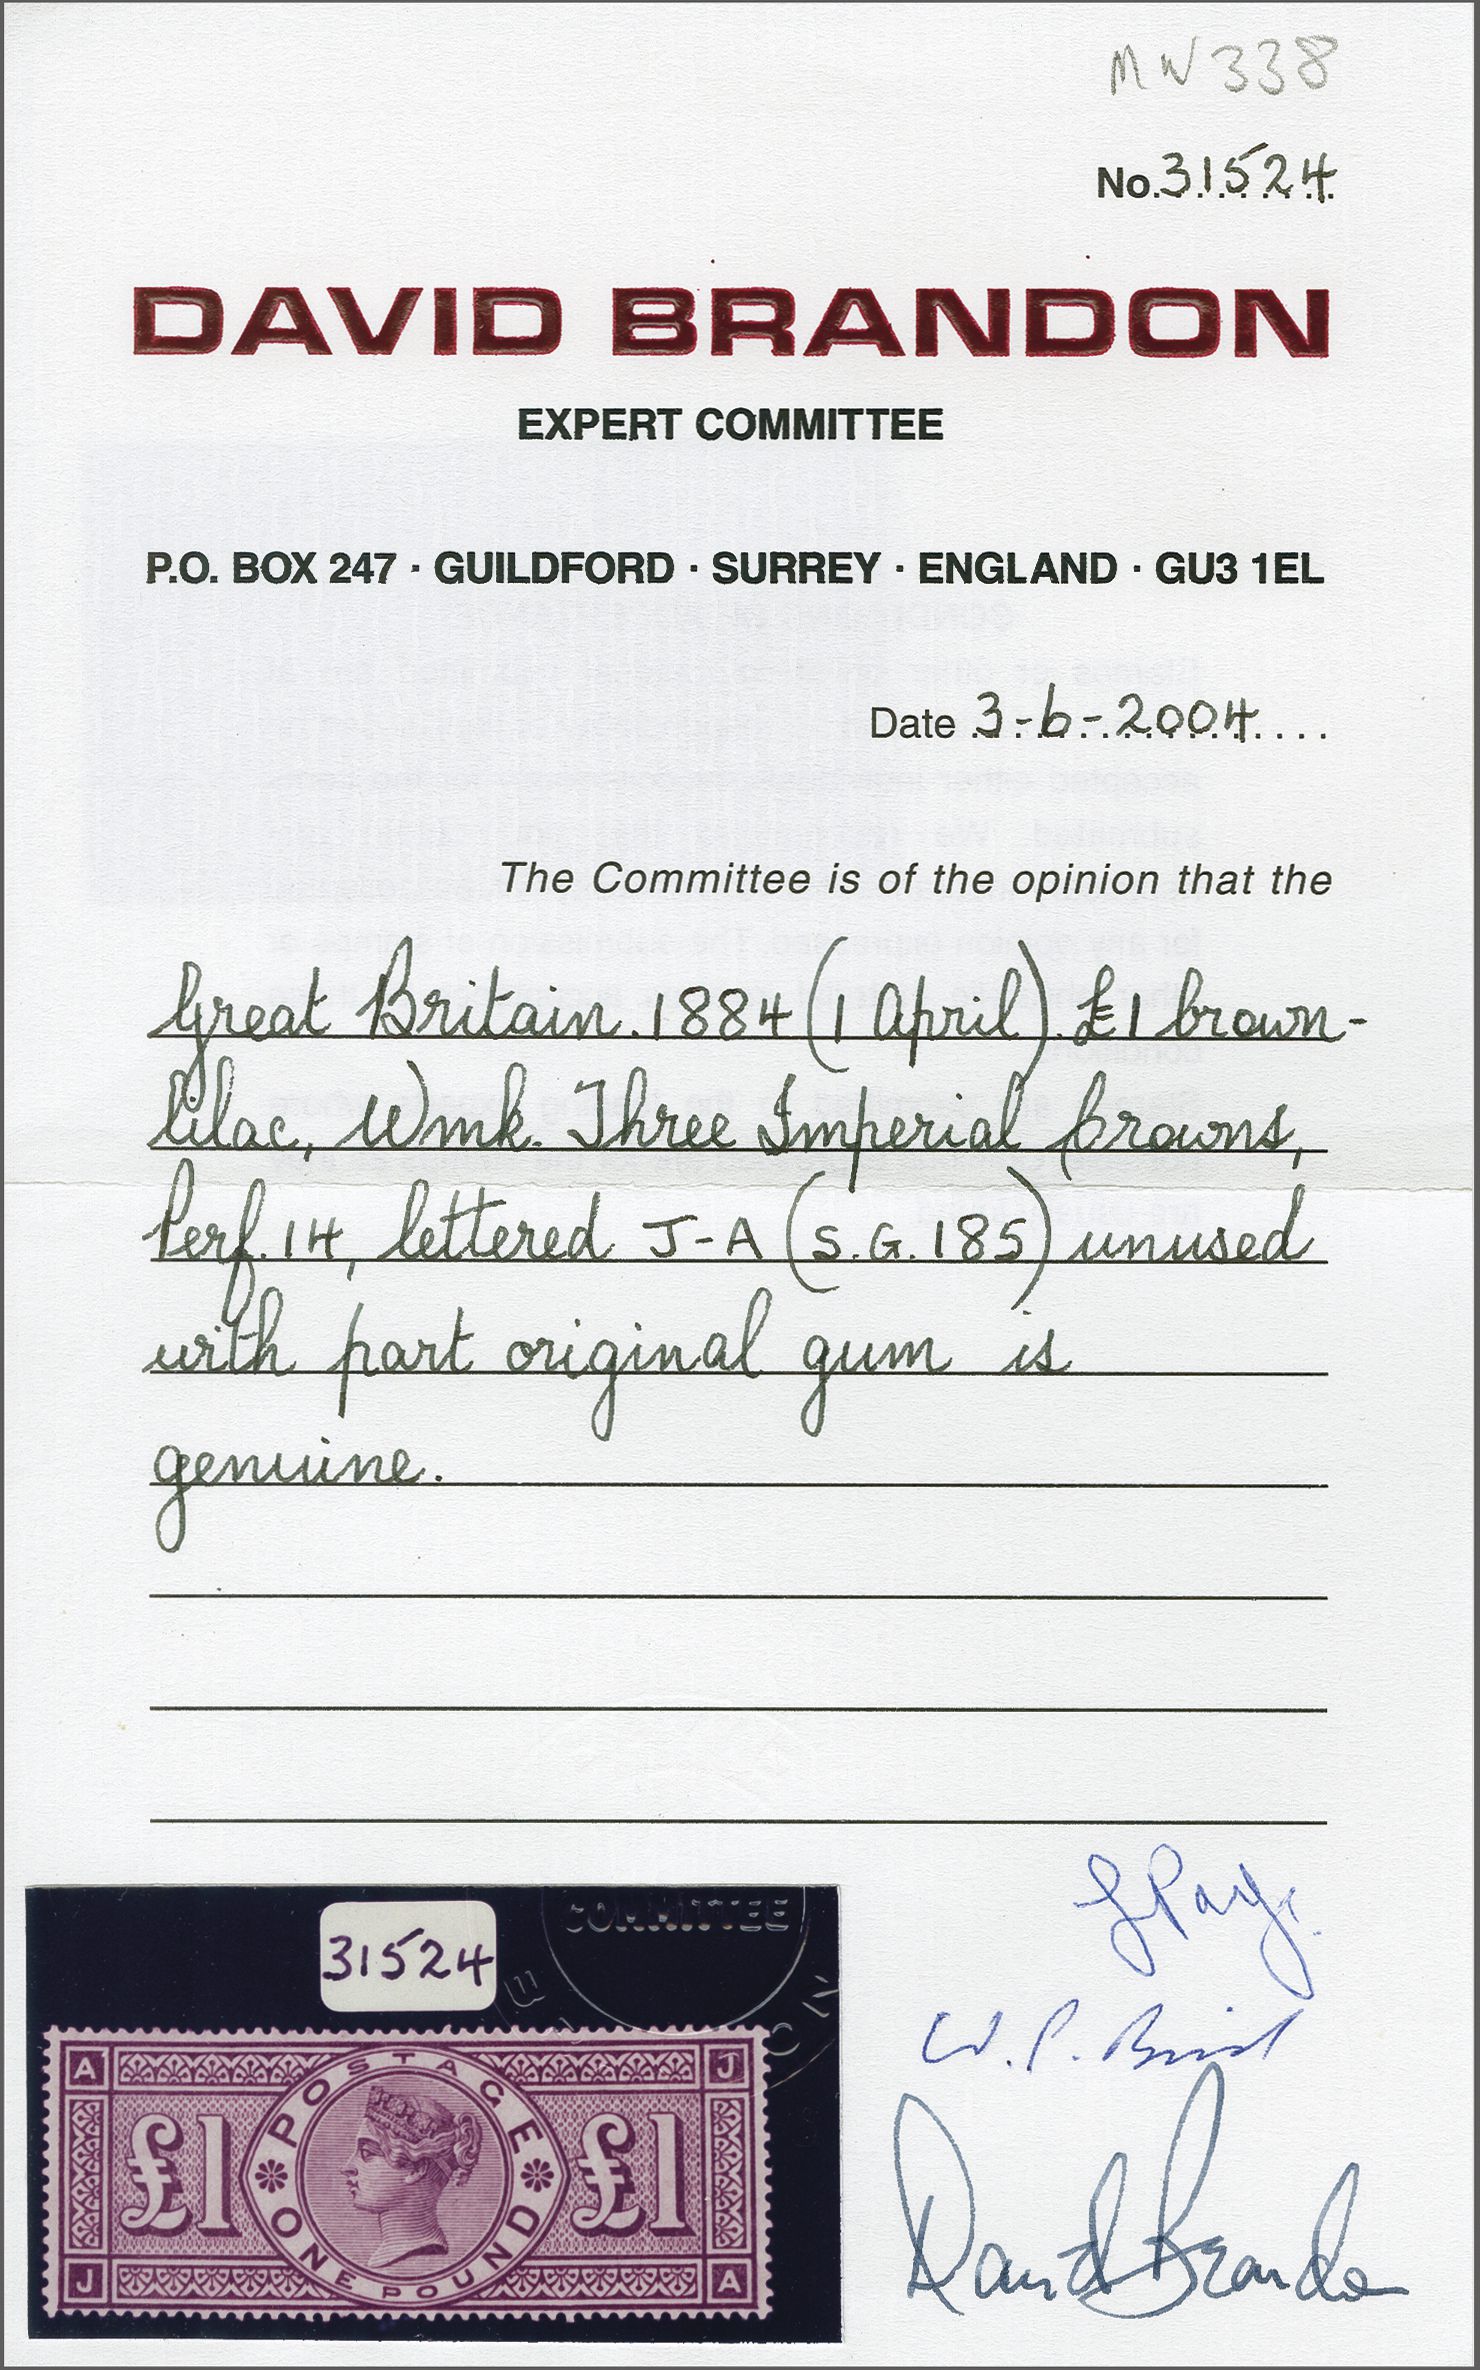 MW338
No. 31524
DAVID BRANDON
EXPERT COMMITTEE
P.O. BOX 247 · GUILDFORD · SURREY · ENGLAND · GU3 1EL
Date 3-6-2004
The Committee is of the opinion that the
Great Britain. 1884 (1 April). £1 brown-
lilac, Wmk. Three Imperial Crowns,
Perf. 14, lettered J-A (S.G. 185) unused
with part original gum is
genuine.
COMMITTEE
31524
A J
POSTAGE
£1 £1
ONE POUND
J A
David Brandon